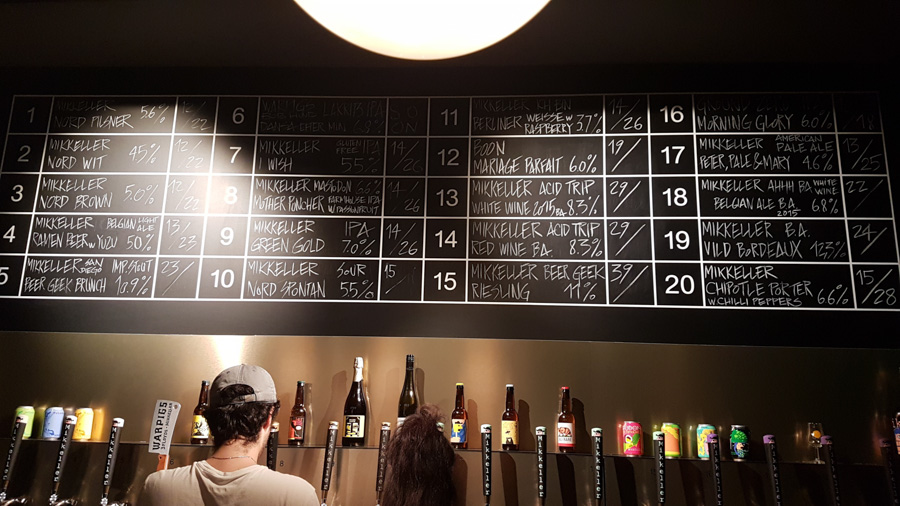 1 MIKKELLER 5.6% 12/22
NORD PILSNER
2 MIKKELLER 12/22
NORD WIT 4.5%
3 MIKKELLER 12/22
NORD BROWN 5.0%
4 MIKKELLER BELGIAN LIGHT ALE 13/23
RAMEN BEER W YUZU 5.0%
5 MIKKELLER SAN DIEGO IMP. STOUT 23/
BEER GEEK BRUNCH 10.9%
6
7 MIKKELLER GLUTEN FREE IPA 14/26
I WISH 5.5%
8 MIKKELLER MASTODON 6.6% 14/26
MOTHER PUNCHER FARMHOUSE IPA W PASSIONFRUIT
9 MIKKELLER IPA 14/26
GREEN GOLD 7.0%
10 MIKKELLER SOUR 15/
NORD SPONTAN 5.5%
11 MIKKELLER 14/26
BERLINER WEISSE W RASPBERRY 3.7%
12 BOON 19/
MARIAGE PARFAIT 6.0%
13 MIKKELLER ACID TRIP 29/
WHITE WINE 2015 BA 8.3%
14 MIKKELLER ACID TRIP 29/
RED WINE B.A. 8.3%
15 MIKKELLER BEER GEEK 39/
RIESLING 11%
16
MORNING GLORY 6.0% /18
17 MIKKELLER AMERICAN PALE ALE 13/25
PETER, PALE & MARY 4.6%
18 MIKKELLER AHHH BA WHITE WINE 22/
BELGIAN ALE B.A. 2015 6.8%
19 MIKKELLER B.A. 24/
VILD BORDEAUX 12.5%
20 MIKKELLER 15/28
CHIPOTLE PORTER
W CHILLI PEPPERS 6.6%
WARPIGS
Mikkeller
Mikkeller
Mikkeller
Mikkeller
Mikkeller
Mikkeller
Mikkeller
Mikkeller
Mikkeller
Mikkeller
Mikkeller